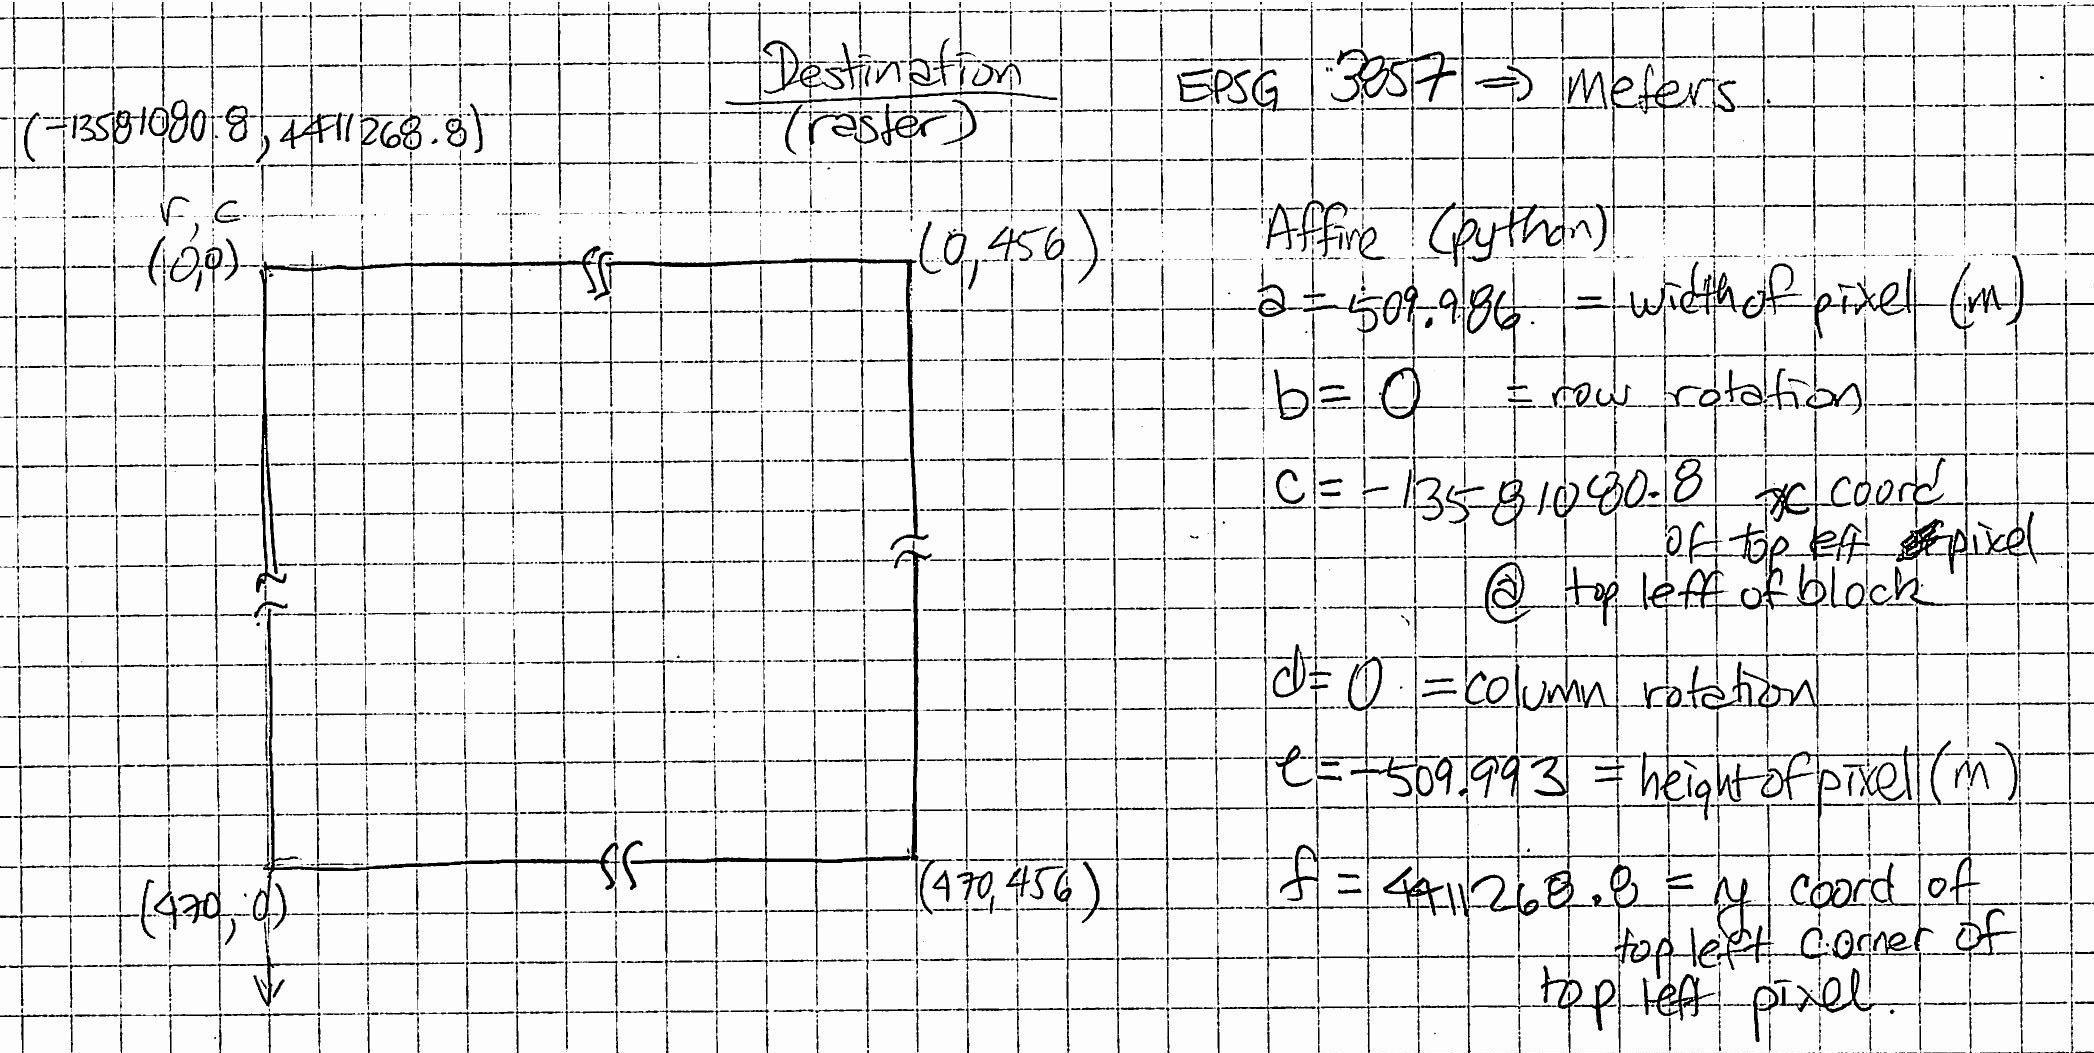 Destination
(raster)
EPSG 3857 => meters
(-13581080.8, 4411268.8)
r, c
(0,0)
(0,456)
(470, 0)
(470,456)
Affine (python)
a = 509.986 = width of pixel (m)
b = 0 = row rotation
c = -13581080.8 x coord
of top left pixel
@ top left of block
d = 0 = column rotation
e = -509.993 = height of pixel (m)
f = 4411268.8 = y coord of
top left corner of
top left pixel.